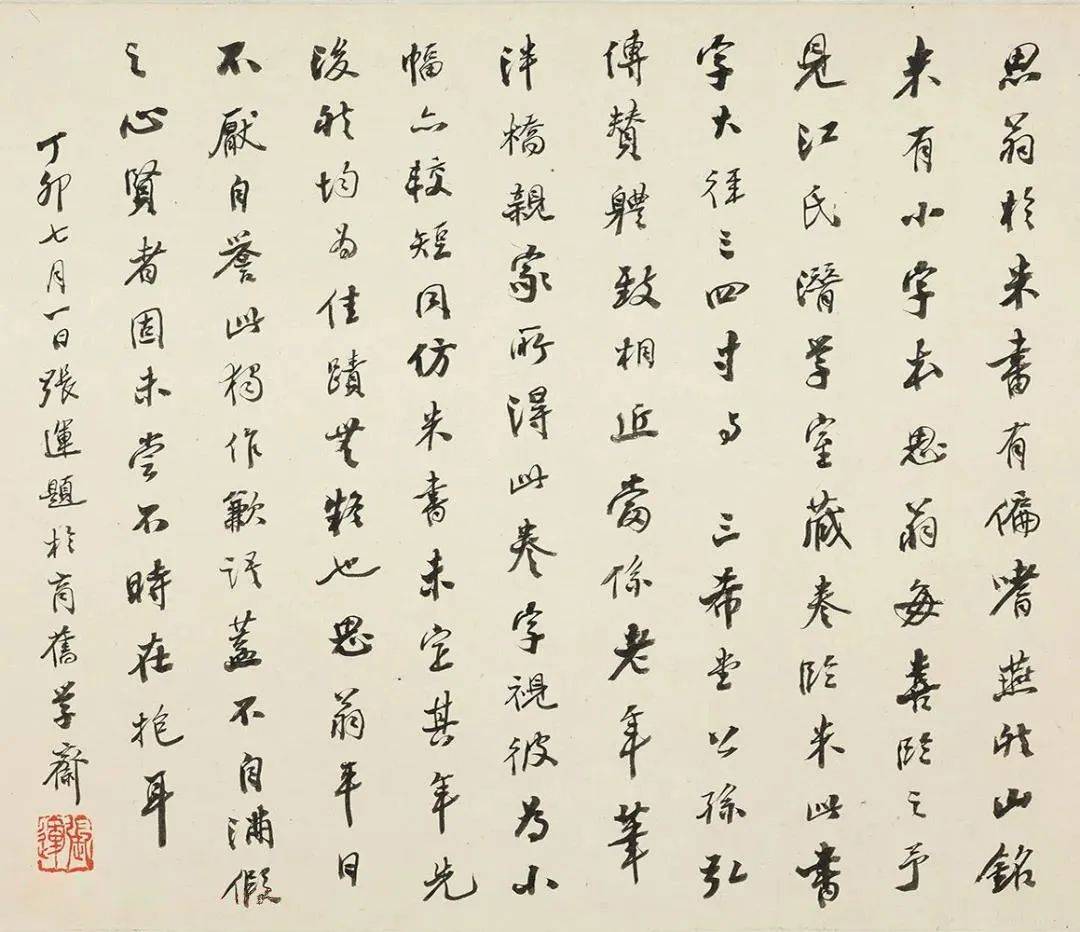 思翁於米書有偏嗜燕然山銘
米有小字本思翁每喜臨之予
見江氏潛學室藏卷臨米此書
字大徑三四寸与 三希堂公孫弘
傳贊體致相近當係老年筆
泮橋親家所得此卷字視彼為小
幅亦較短同仿米書未定其年先
後然均為佳蹟無疑也思翁平日
不厭自譽此獨作歉語蓋不自滿假
之心賢者固未嘗不時在抱耳
丁卯七月一日張運題於商舊學齋
張運